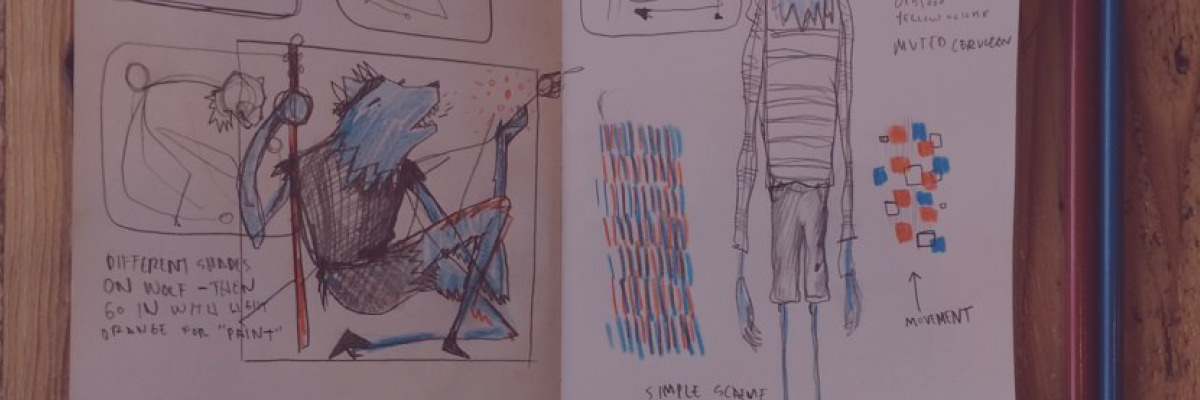 DIFFERENT SHADES
ON WOLF - THEN
GO IN WITH LIGHT
ORANGE FOR "PAINT"
YELLOW
MUTED CERULEAN
MOVEMENT
SIMPLE SCHEME